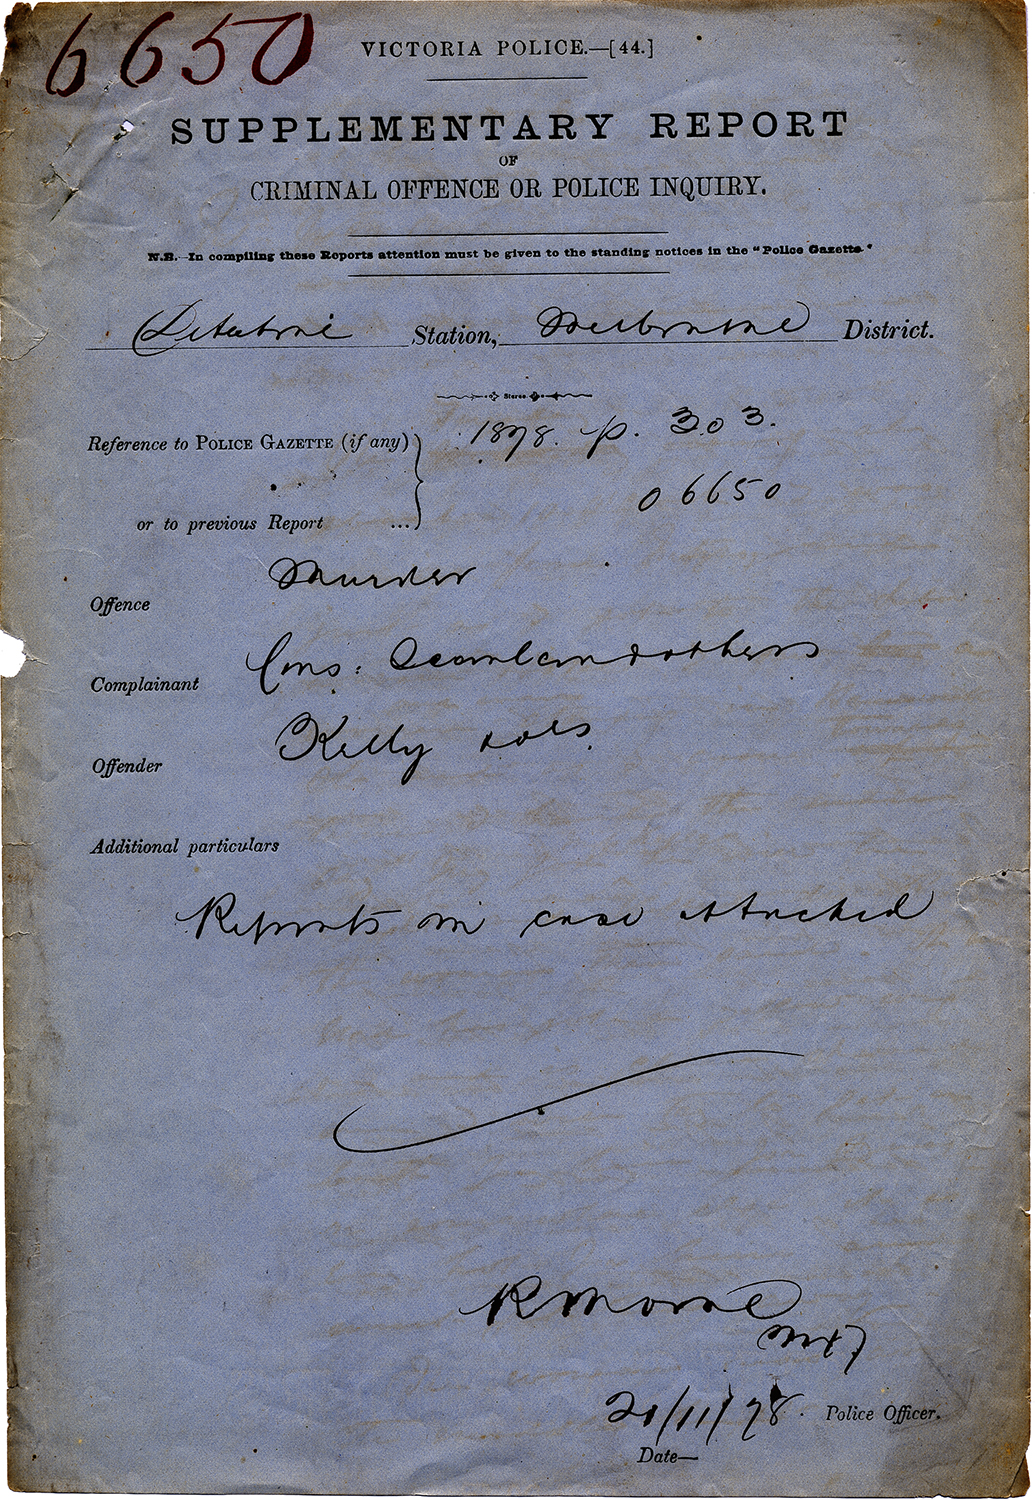 6650
VICTORIA POLICE.—[44.]
SUPPLEMENTARY REPORT
OF
CRIMINAL OFFENCE OR POLICE INQUIRY.
N.B.—In compiling these Reports attention must be given to the standing notices in the "Police Gazette."
Detective Station, Melbourne District.
Stereo.
Reference to POLICE GAZETTE (if any) 1878. p. 303.
06650
or to previous Report ...
Offence Murder
Complainant Cons: Scanlan & others
Offender Kelly & ots
Additional particulars
Reports in case attached
20/11/78. Police Officer.
Date—